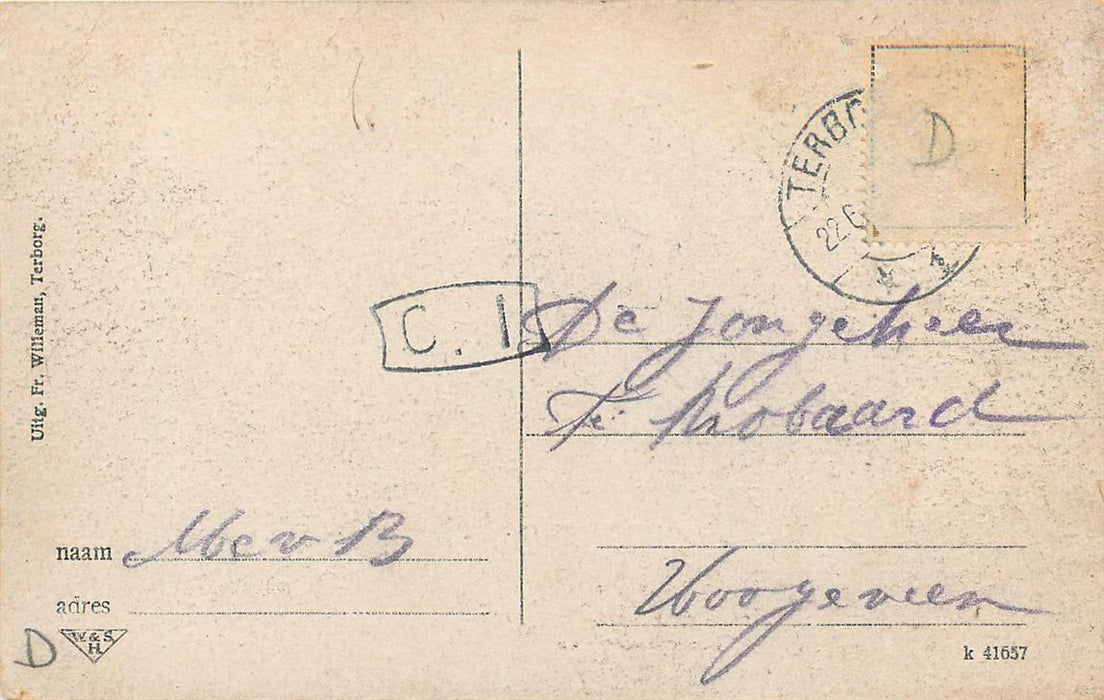 Uitg. Fr. Willeman, Terborg.
TERBO
22.6
D
C. 1
De Jongeheer
Hoogeveen
naam Mevr B
adres
D
W. & S.
H.
k 41657